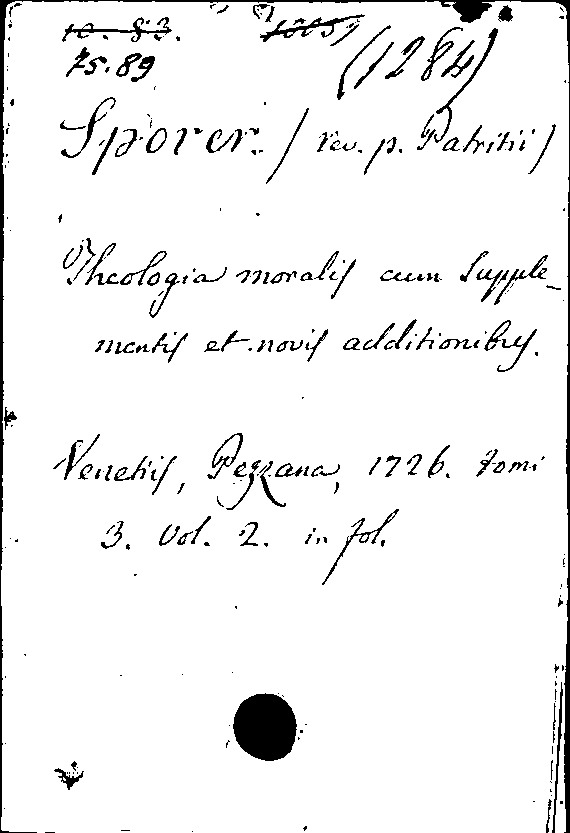 10. 83.
75.89 (1284)
Sporer. / rev. p. Patritii /
Theologia moralis cum Supple-
mentis et novis additionibus.
Venetiis, Pezzana, 1726. tomi
3. Vol. 2. in fol.